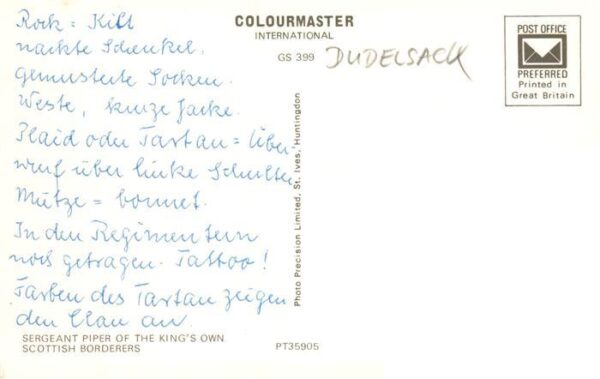 Rock = Kilt
nackte Schenkel,
gemusterte Socken.
Weste, kurze Jacke.
Plaid oder Tartan = Über-
wurf über linke Schulter
Mütze = bonnet.
In den Regimentern
noch getragen. Tattoo!
Farben des Tartan zeigen
den Clan an.
SERGEANT PIPER OF THE KING'S OWN
SCOTTISH BORDERERS
COLOURMASTER
INTERNATIONAL
GS 399
DUDELSACK
Photo Precision Limited, St. Ives, Huntingdon
PT35905
POST OFFICE
PREFERRED
Printed in
Great Britain